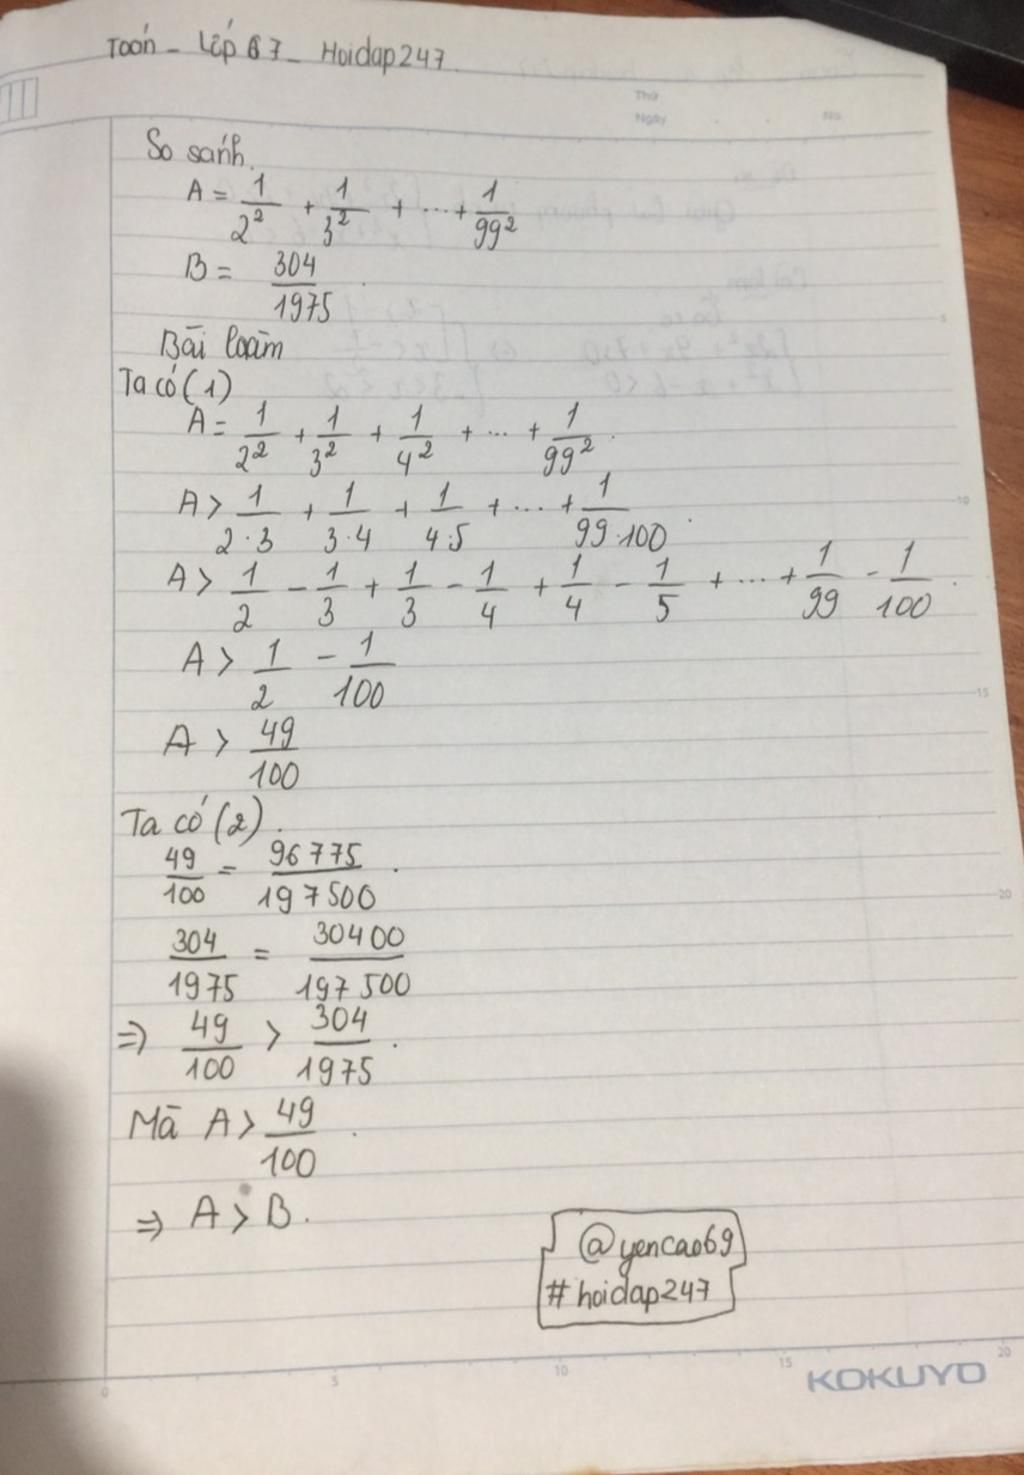 Toán - Lớp 67 - Hoidap247.
Thứ
Ngày
No.
So sánh.
A = 1/2² + 1/3² + ... + 1/99²
B = 304/1975
Bài loàm
Ta có (1)
A = 1/2² + 1/3² + 1/4² + ... + 1/99².
A > 1/2·3 + 1/3·4 + 1/4·5 + ... + 1/99·100.
A > 1/2 - 1/3 + 1/3 - 1/4 + 1/4 - 1/5 + ... + 1/99 - 1/100.
A > 1/2 - 1/100
A > 49/100
Ta có (2).
49/100 = 96775/197500.
304/1975 = 30400/197500
⇒ 49/100 > 304/1975.
Mà A > 49/100.
⇒ A > B.
@yencao69
#hoidap247
5
10
15
20
0
5
10
15
20
KOKUYO